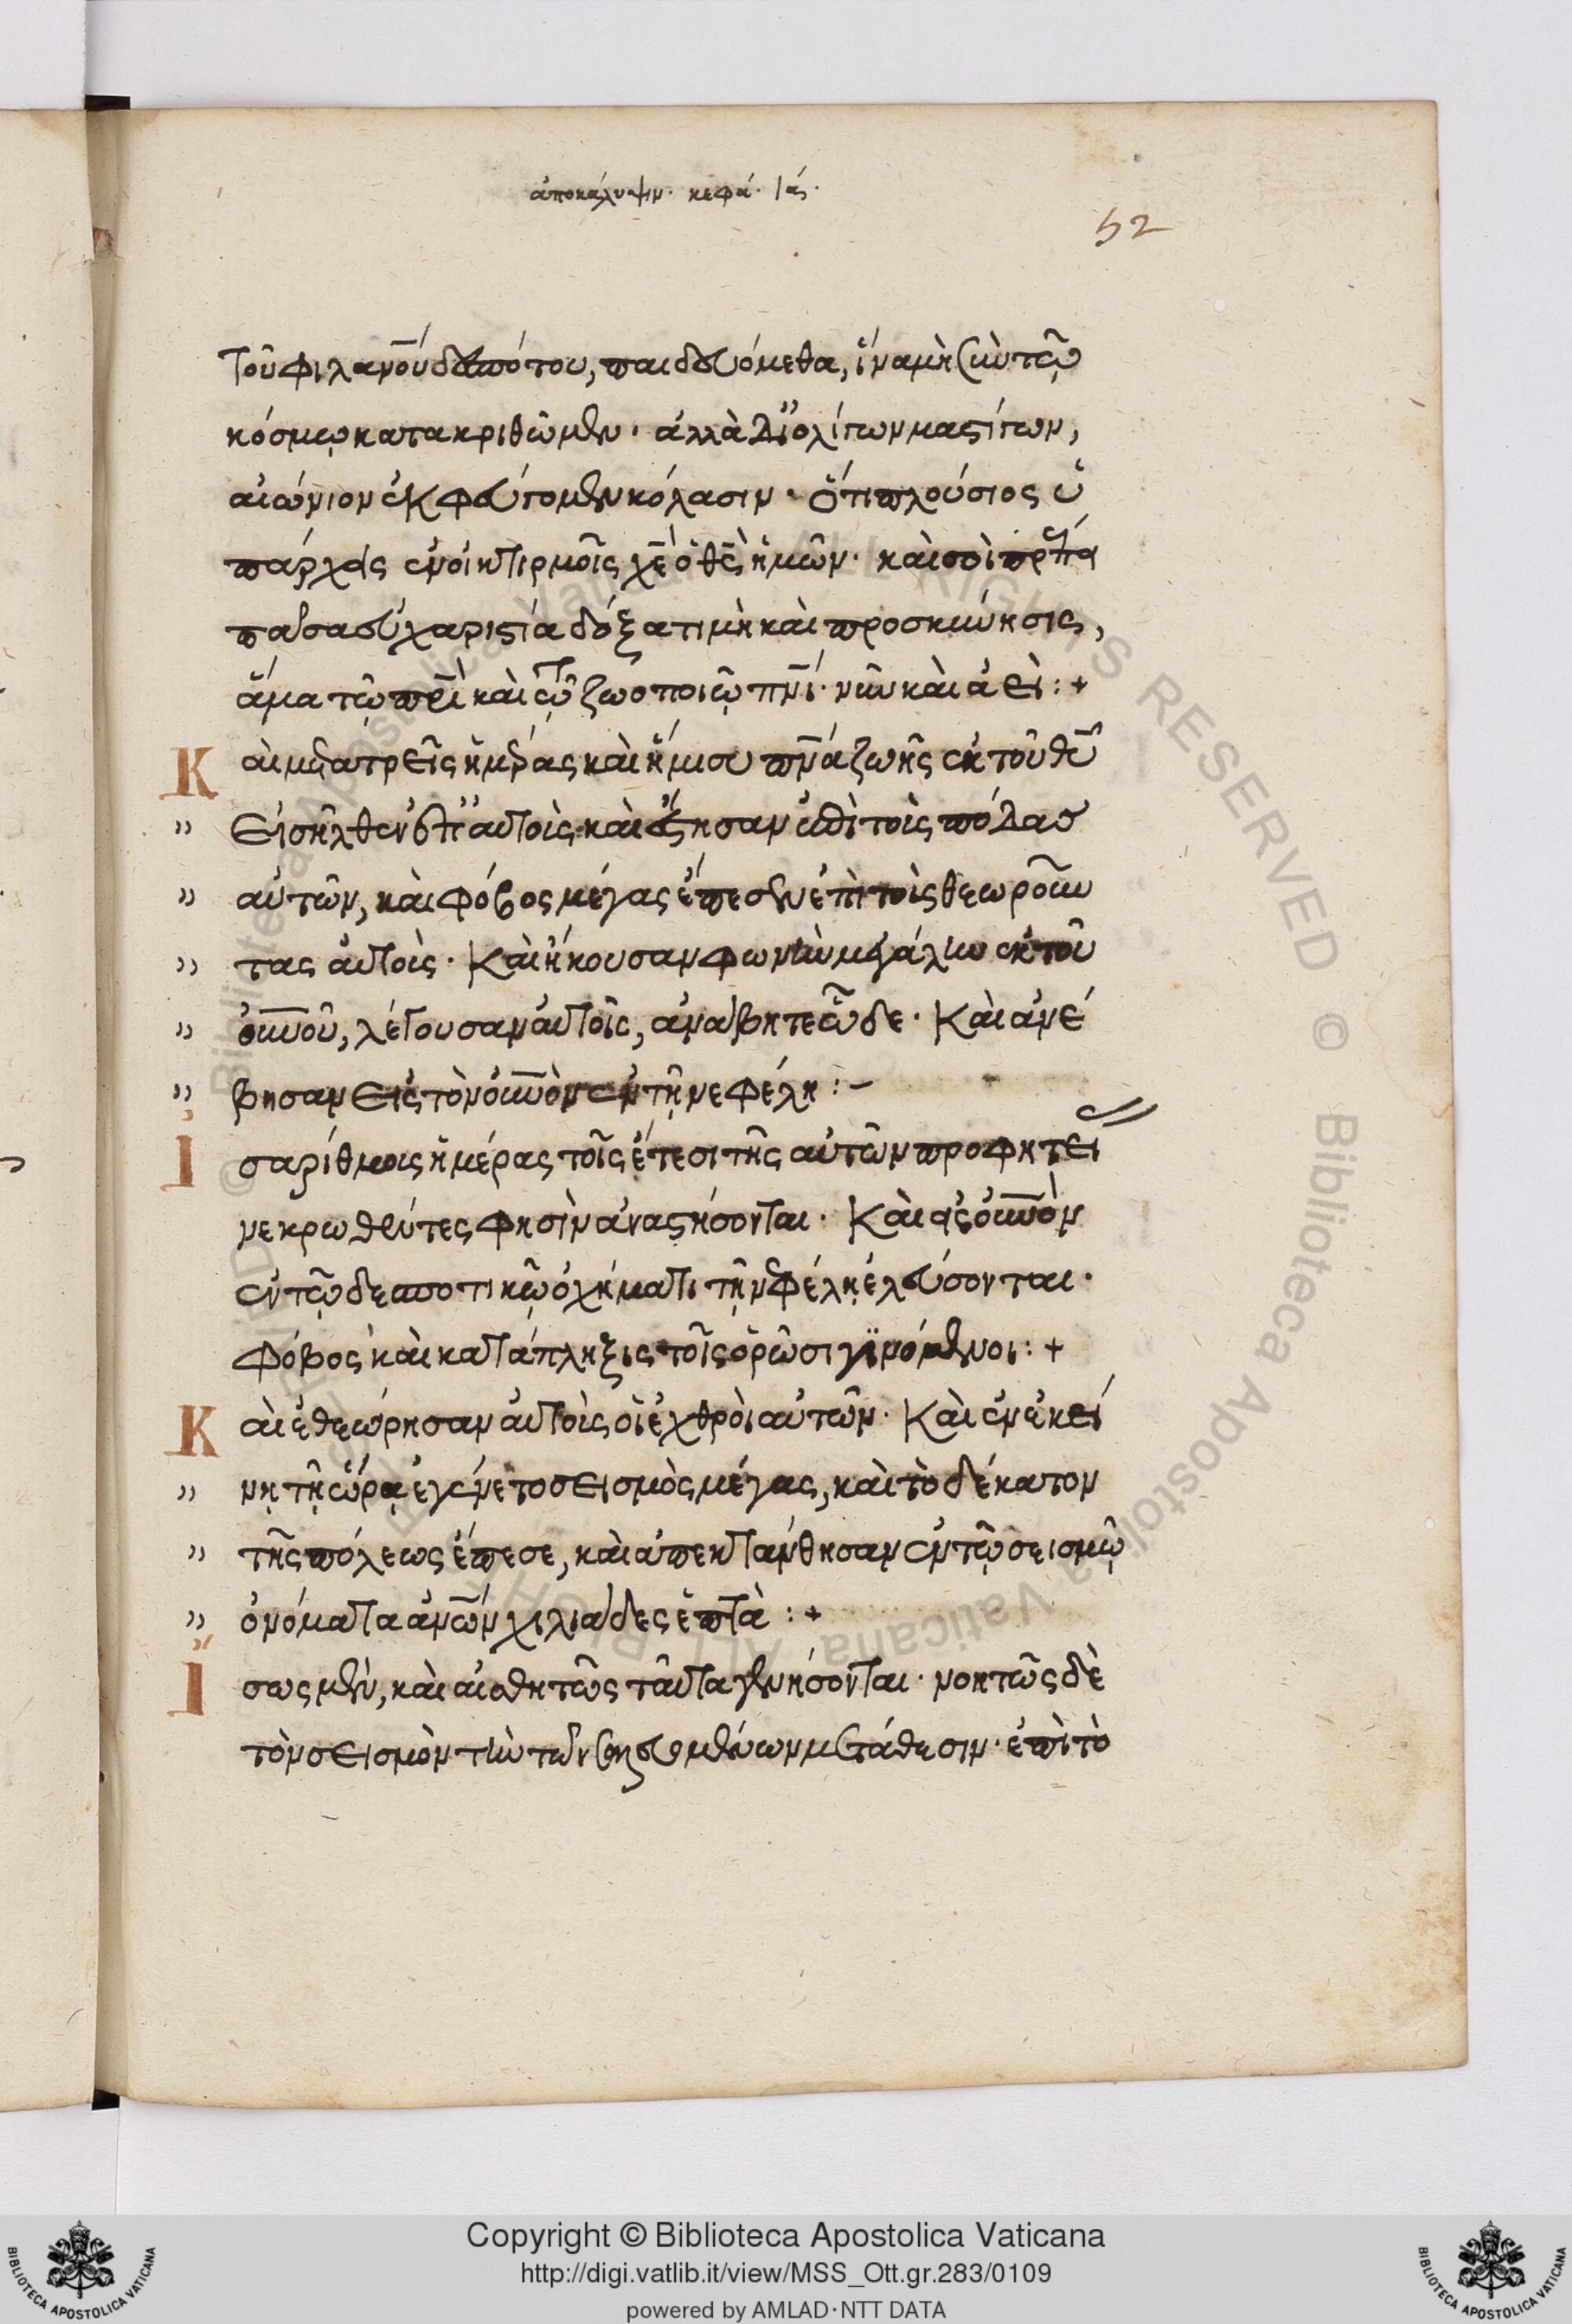 ἀποκάλυψιν· κεφά· λά·
52
τοῦ φιλανου δεσπότου, παιδευόμεθα, ἵνα μὴ σὺν τῷ
κόσμῳ κατακριθῶμεν· ἀλλὰ δι' ὀλίγων μαστίγων,
αἰώνιον ἐκφεύγομεν κόλασιν· ὅτι πλούσιος ὑ
πάρχεις ἐν οἰκτιρμοῖς χε ὁ θς ἡμῶν· καὶ σοὶ πρέπει
πᾶσα εὐχαριστία δόξα τιμὴ καὶ προσκύνησις,
ἅμα τῷ πρι καὶ τῷ ζωοποιῷ πνι· νῦν καὶ ἀεὶ:+
Καὶ μετὰ τρεῖς ἡμέρας καὶ ἥμισυ πνα ζωῆς ἐκ τοῦ θυ
" εἰσῆλθεν ἐπ' αὐτοὺς καὶ ἔστησαν ἐπὶ τοὺς πόδας
" αὐτῶν, καὶ φόβος μέγας ἔπεσεν ἐπὶ τοὺς θεωροῦν
" τας αὐτούς· Καὶ ἤκουσαν φωνὴν μεγάλην ἐκ τοῦ
" οὐνοῦ, λέγουσαν αὐτοῖς, ἀνάβητε ὧδε· Καὶ ἀνέ
" βησαν εἰς τὸν οὐνὸν ἐν τῇ νεφέλῃ:-
Ἰσαρίθμοις ἡμέρας τοῖς ἔτεσι τῆς αὐτῶν προφητεί
νεκρωθέντες φησὶν ἀναστήσονται· Καὶ εἰς οὐνὸν
ἐν τῷ δεσποτικῷ ὀχήματι τῇ νεφέλῃ ἐλεύσονται·
φόβος καὶ κατάπληξις τοῖς ὁρῶσι γινόμενοι:+
Καὶ ἐθεώρησαν αὐτοὺς οἱ ἐχθροὶ αὐτῶν· Καὶ ἐν ἐκεί
" νῃ τῇ ὥρᾳ ἐγένετο σεισμὸς μέγας, καὶ τὸ δέκατον
" τῆς πόλεως ἔπεσε, καὶ ἀπεκτάνθησαν ἐν τῷ σεισμῷ
" ὀνόματα ανων χιλιάδες ἑπτὰ:+
Ἴσως μὲν, καὶ αἰσθητῶς ταῦτα γενήσονται· νοητῶς δὲ
τὸν σεισμὸν τὴν τῶν σειομένων μετάθεσιν· ἐπὶ τὸ
Copyright © Biblioteca Apostolica Vaticana
http://digi.vatlib.it/view/MSS_Ott.gr.283/0109
powered by AMLAD·NTT DATA